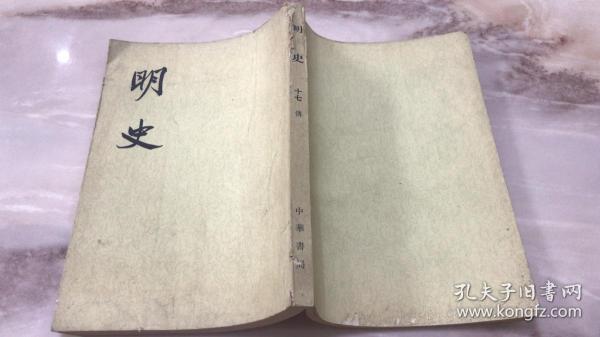 明史
明史
十七 傳
中華書局
孔夫子旧书网
www.kongfz.com